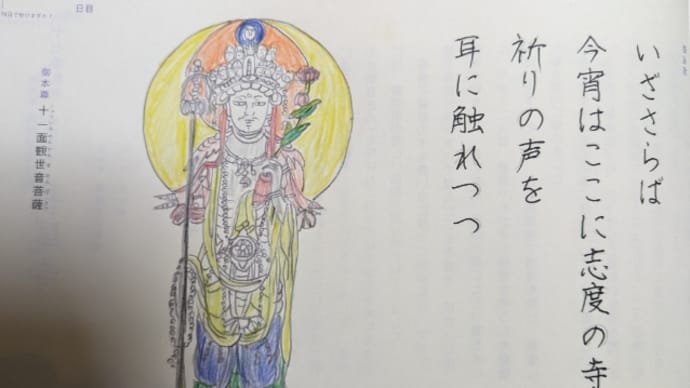 いざさらば
今宵はここに志度の寺
祈りの声を
耳に触れつつ
御本尊 十一面観世音菩薩
日目